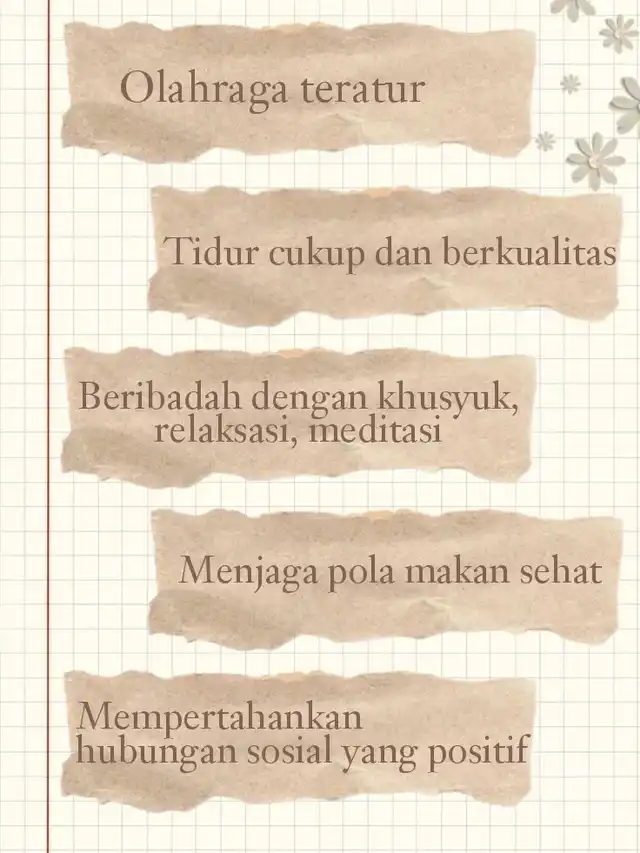 Olahraga teratur
Tidur cukup dan berkualitas
Beribadah dengan khusyuk,
relaksasi, meditasi
Menjaga pola makan sehat
Mempertahankan
hubungan sosial yang positif